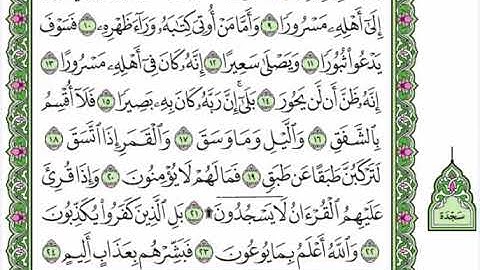 إِلَىٰٓ أَهْلِهِۦ مَسْرُورًا ٩ وَأَمَّا مَنْ أُوتِىَ كِتَٰبَهُۥ وَرَآءَ ظَهْرِهِۦ ١٠ فَسَوْفَ
يَدْعُوا۟ ثُبُورًا ١١ وَيَصْلَىٰ سَعِيرًا ١٢ إِنَّهُۥ كَانَ فِىٓ أَهْلِهِۦ مَسْرُورًا ١٣
إِنَّهُۥ ظَنَّ أَن لَّن يَحُورَ ١٤ بَلَىٰٓ إِنَّ رَبَّهُۥ كَانَ بِهِۦ بَصِيرًا ١٥ فَلَآ أُقْسِمُ
بِٱلشَّفَقِ ١٦ وَٱلَّيْلِ وَمَا وَسَقَ ١٧ وَٱلْقَمَرِ إِذَا ٱتَّسَقَ ١٨
لَتَرْكَبُنَّ طَبَقًا عَن طَبَقٍ ١٩ فَمَا لَهُمْ لَا يُؤْمِنُونَ ٢٠ وَإِذَا قُرِئَ
عَلَيْهِمُ ٱلْقُرْءَانُ لَا يَسْجُدُونَ ۩ ٢١ بَلِ ٱلَّذِينَ كَفَرُوا۟ يُكَذِّبُونَ
٢٢ وَٱللَّهُ أَعْلَمُ بِمَا يُوعُونَ ٢٣ فَبَشِّرْهُم بِعَذَابٍ أَلِيمٍ ٢٤
سَجْدَة